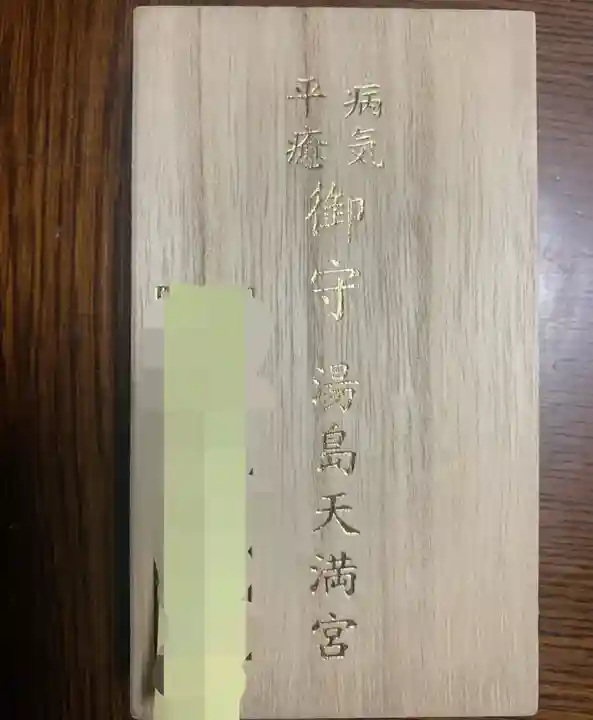 病気
平癒
御守 湯島天満宮